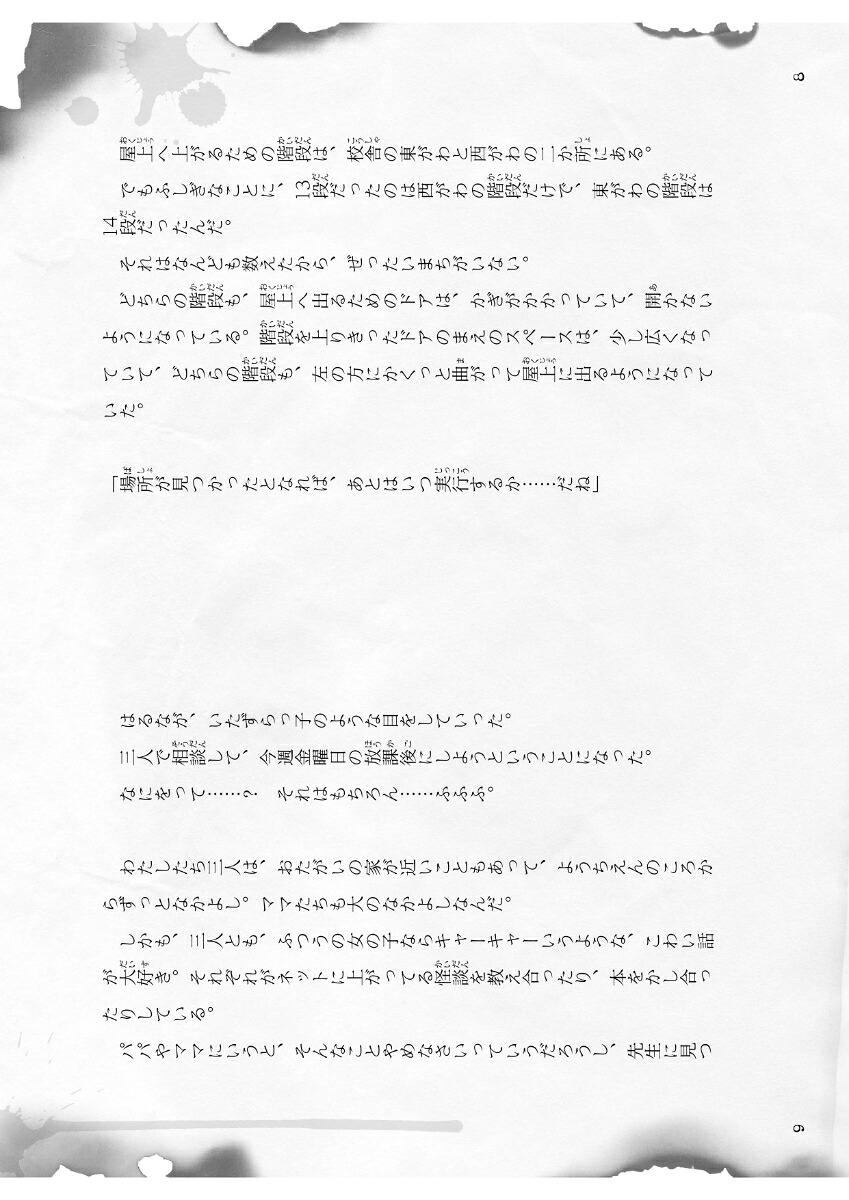 8
屋上へ上がるための階段は、校舎の東がわと西がわの二か所にある。
でもふしぎなことに、13段だったのは西がわの階段だけで、東がわの階段は
14段だったんだ。
それはなんども数えたから、ぜったいまちがいない。
どちらの階段も、屋上へ出るためのドアは、かぎがかかっていて、開かない
ようになっている。階段を上りきったドアのまえのスペースは、少し広くなっ
ていて、どちらの階段も、左の方にかくっと曲がって屋上に出るようになって
いた。
「場所が見つかったとなれば、あとはいつ実行するか……だね」
はるなが、いたずらっ子のような目をしていった。
三人で相談して、今週金曜日の放課後にしようということになった。
なにをって……？　それはもちろん……ふふふ。
わたしたち三人は、おたがいの家が近いこともあって、ようちえんのころか
らずっとなかよし。ママたちも大のなかよしなんだ。
しかも、三人とも、ふつうの女の子ならキャーキャーいうような、こわい話
が大好き。それぞれがネットに上がってる怪談を教え合ったり、本をかし合っ
たりしている。
パパやママにいうと、そんなことやめなさいっていうだろうし、先生に見つ
9